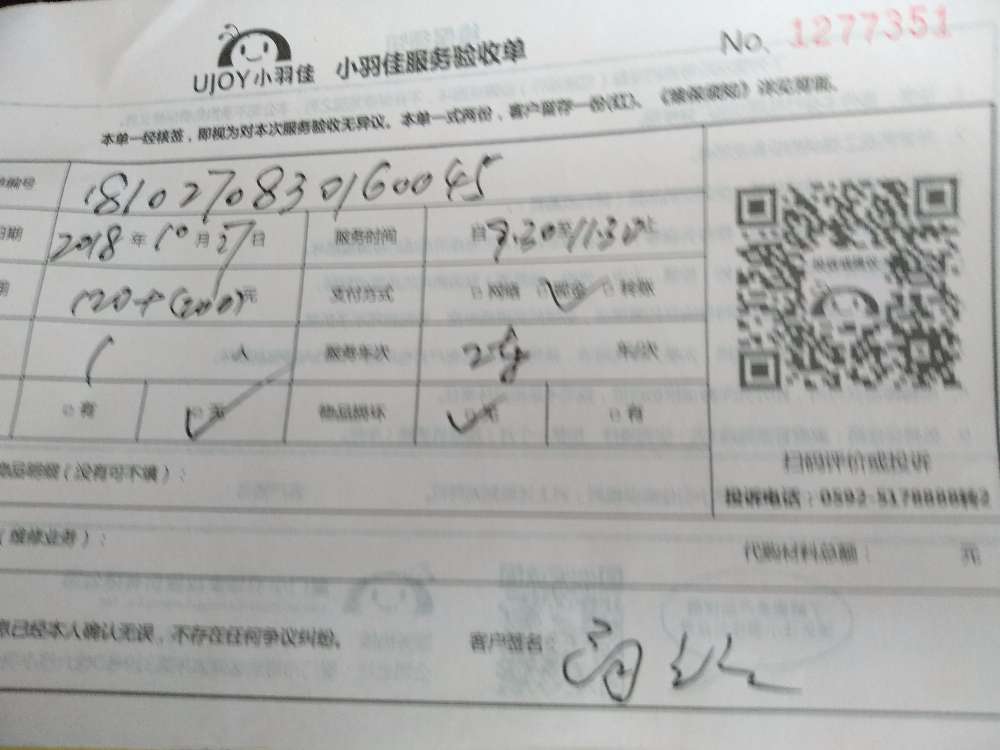 UJOY小羽佳 小羽佳服务验收单 No. 1277351
本单一经核签，即视为对本次服务验收无异议。本单一式两份，客户留存一份(红)。《维保须知》详见背面。
编号 1810270830160045
日期 2018年10月27日 服务时间 自9:30至11:30止
120+(200)元 支付方式 网络 现金 转账
1人 服务车次 车/次
有 无 物品损坏 无 有
扫码评价或投诉
物品明细（没有可不填）：
投诉电话：0592-5178888转2
（维修业务）： 代购材料总额： 元
已经本人确认无误，不存在任何争议纠纷。 客户签名